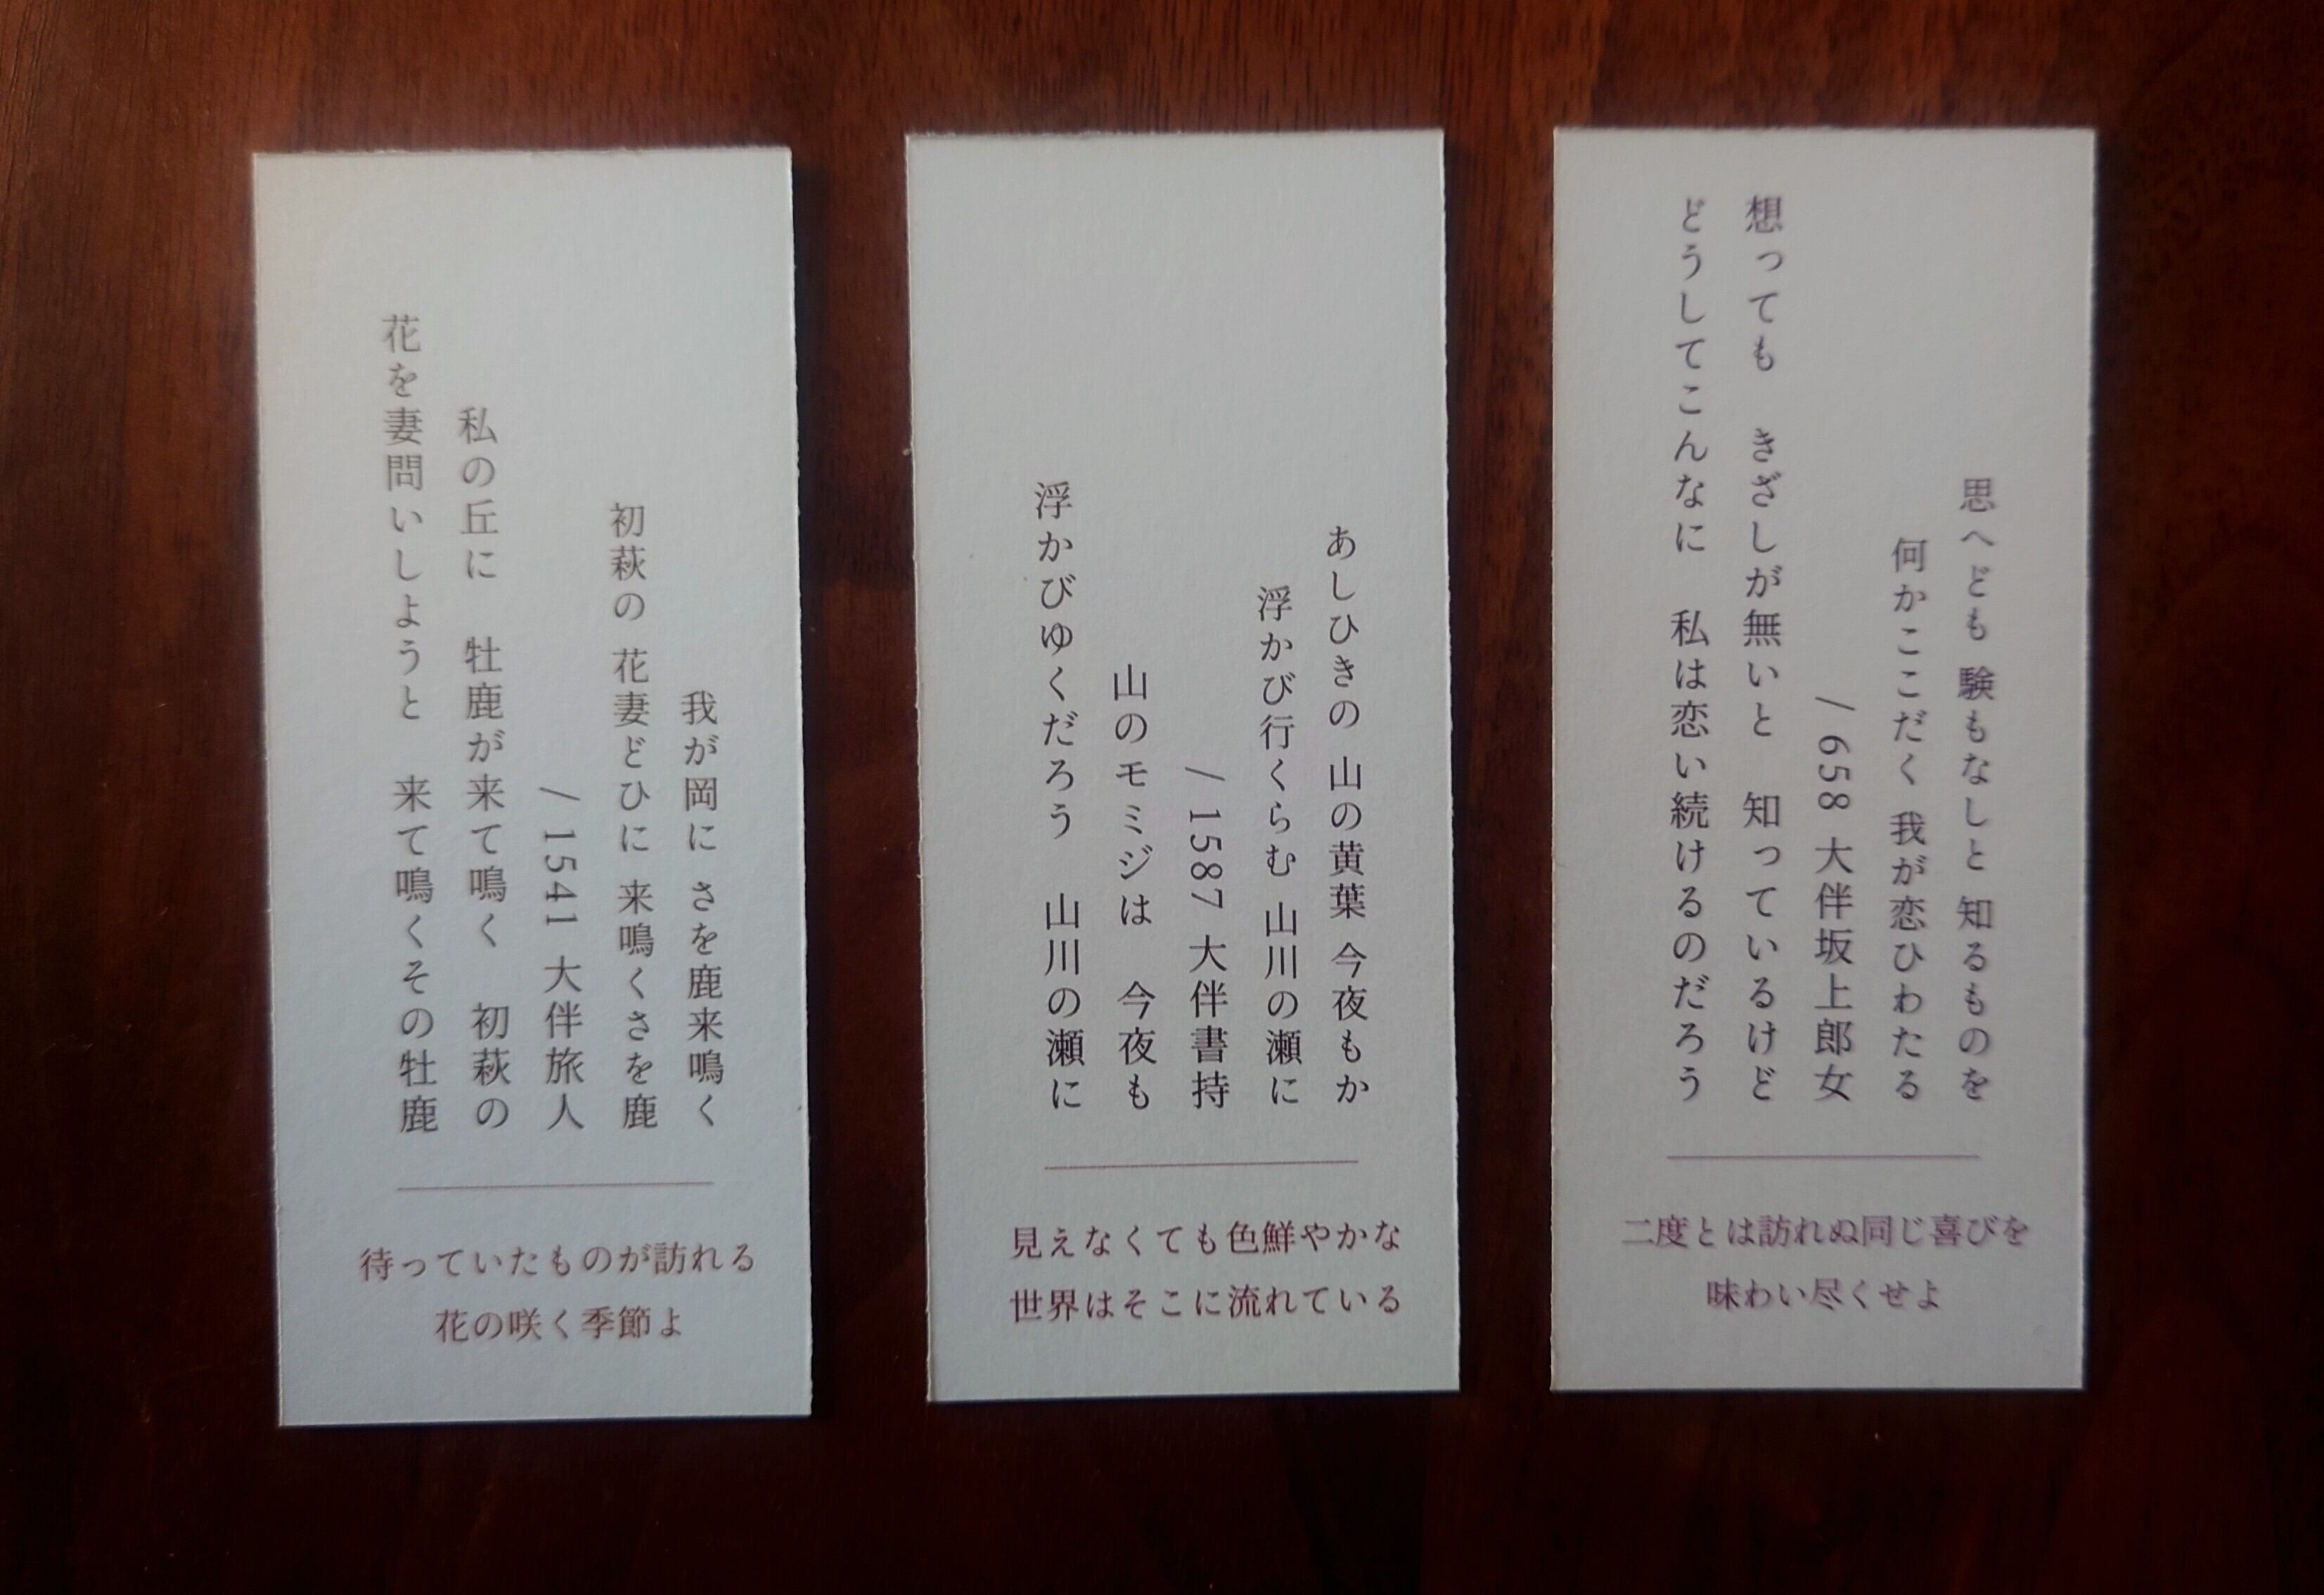 我が岡に さを鹿来鳴く
初萩の 花妻どひに 来鳴くさを鹿
/ 1541 大伴旅人
私の丘に 牡鹿が来て鳴く 初萩の
花を妻問いしようと 来て鳴くその牡鹿
待っていたものが訪れる
花の咲く季節よ
あしひきの 山の黄葉 今夜もか
浮かび行くらむ 山川の瀬に
/ 1587 大伴書持
山のモミジは 今夜も
浮かびゆくだろう 山川の瀬に
見えなくても色鮮やかな
世界はそこに流れている
思へども 験もなしと 知るものを
何かここだく 我が恋ひわたる
/ 658 大伴坂上郎女
想っても きざしが無いと 知っているけど
どうしてこんなに 私は恋い続けるのだろう
二度とは訪れぬ同じ喜びを
味わい尽くせよ